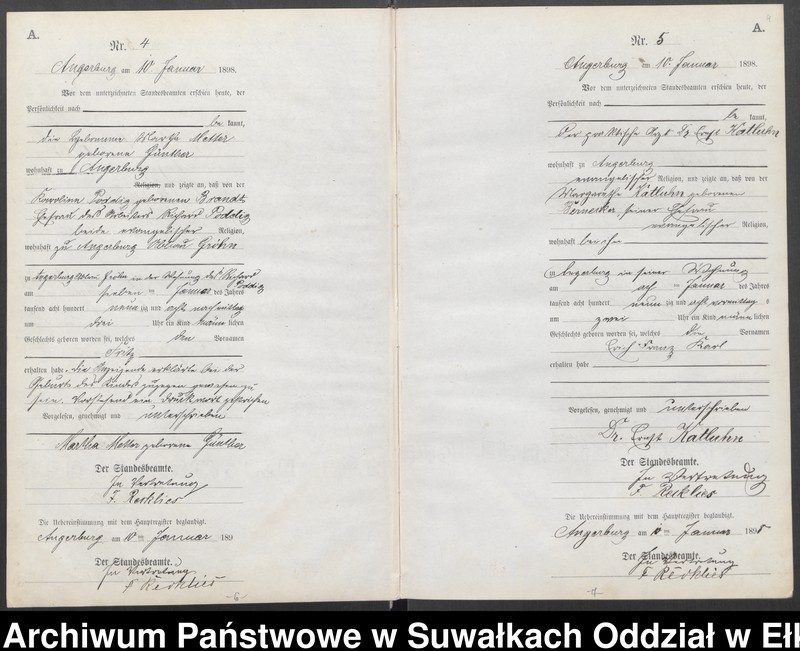 A.
Nr. 4
Angerburg am 10 Januar 1898.
Vor dem unterzeichneten Standesbeamten erschien heute, der
Persönlichkeit nach
be kannt,
die Hebamme Martha Metter
geborene Günther
wohnhaft zu Angerburg
Religion, und zeigte an, daß von der
Karoline Poddig geborenen Brandt
Ehefrau des Richard Poddig
beide evangelischer Religion,
wohnhaft zu Angerburg Abbau Gröhn
zu Angerburg Abbau Gröhn in der Wohnung des Richard
Poddig
am sieben ten Januar des Jahres
tausend acht hundert neun zig und acht nachmittag
um drei Uhr ein Kind männ lichen
Geschlechts geboren worden sei, welches den Vornamen
Fritz
erhalten habe. Die Anzeigende erklärte bei der
Geburt des Kindes zugegen gewesen zu
sein. Vorstehend ein Druckwort gestrichen
Vorgelesen, genehmigt und unterschrieben
Martha Metter geborene Günther
Der Standesbeamte.
In Vertretung
F. Recklies
Die Uebereinstimmung mit dem Hauptregister beglaubigt.
Angerburg am 10 ten Januar 189
Der Standesbeamte.
In Vertretung
F Recklies
-6-
A.
Nr. 5
Angerburg am 10 Januar 1898.
Vor dem unterzeichneten Standesbeamten erschien heute, der
Persönlichkeit nach
be kannt,
der praktische Arzt Dr. Ernst Katluhn
wohnhaft zu Angerburg
evangelischer Religion, und zeigte an, daß von der
Margarethe Katluhn geborenen
Bernecker, seiner Ehefrau
evangelischer Religion,
wohnhaft bei ihm
zu Angerburg in seiner Wohnung
am acht ten Januar des Jahres
tausend acht hundert neun zig und acht vormittag s
um zwei Uhr ein Kind männ lichen
Geschlechts geboren worden sei, welches die Vornamen
Erich Franz Karl
erhalten habe
Vorgelesen, genehmigt und unterschrieben
Dr. Ernst Katluhn
Der Standesbeamte.
In Vertretung
F. Recklies
Die Uebereinstimmung mit dem Hauptregister beglaubigt.
Angerburg am 10 ten Januar 1898
Der Standesbeamte.
In Vertretung
F Recklies
-7-
Archiwum Państwowe w Suwałkach Oddział w Ełk